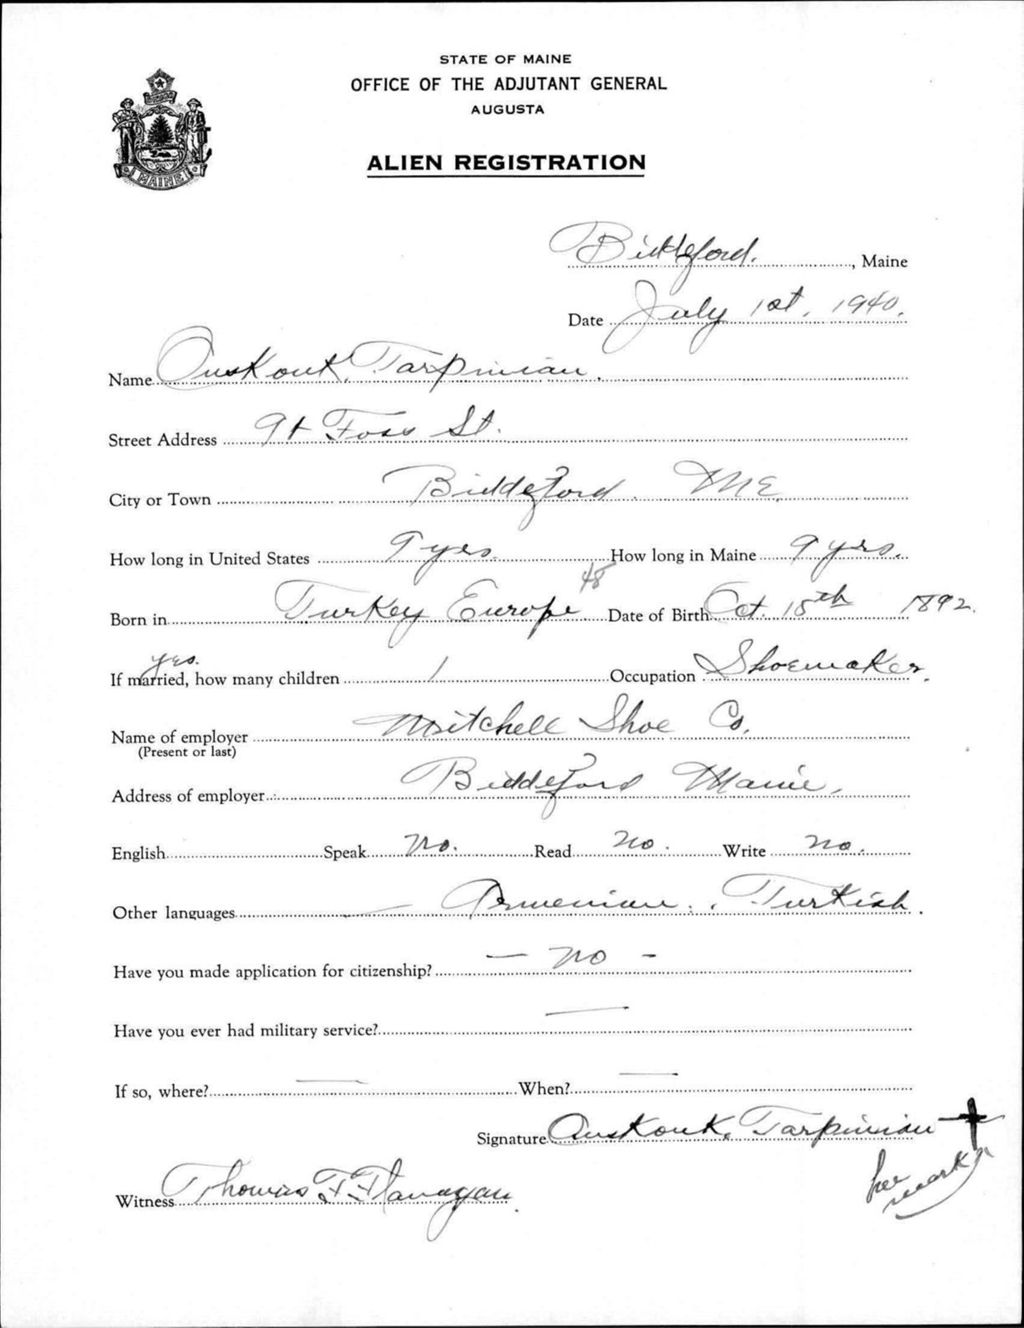 STATE OF MAINE
OFFICE OF THE ADJUTANT GENERAL
AUGUSTA
MAINE
ALIEN REGISTRATION
Biddeford. , Maine
Date July 1st, 1940.
Name Ouskouk, Tarpinian.
Street Address 91 Foss St.
City or Town Biddeford. ME.
How long in United States 9 yrs. How long in Maine 9 yrs.
48
Born in Turkey Europe Date of Birth Oct. 15th 1892.
yes.
If married, how many children 1 Occupation Shoemaker.
Name of employer Mitchell Shoe Co.
(Present or last)
Address of employer Biddeford Maine.
English Speak No. Read No. Write No.
Other languages Armenian, Turkish.
Have you made application for citizenship? — No -
Have you ever had military service? —
If so, where? — When? —
Signature Ouskouk, Tarpinian
her
mark
Witness Thomas F. Flanagan.